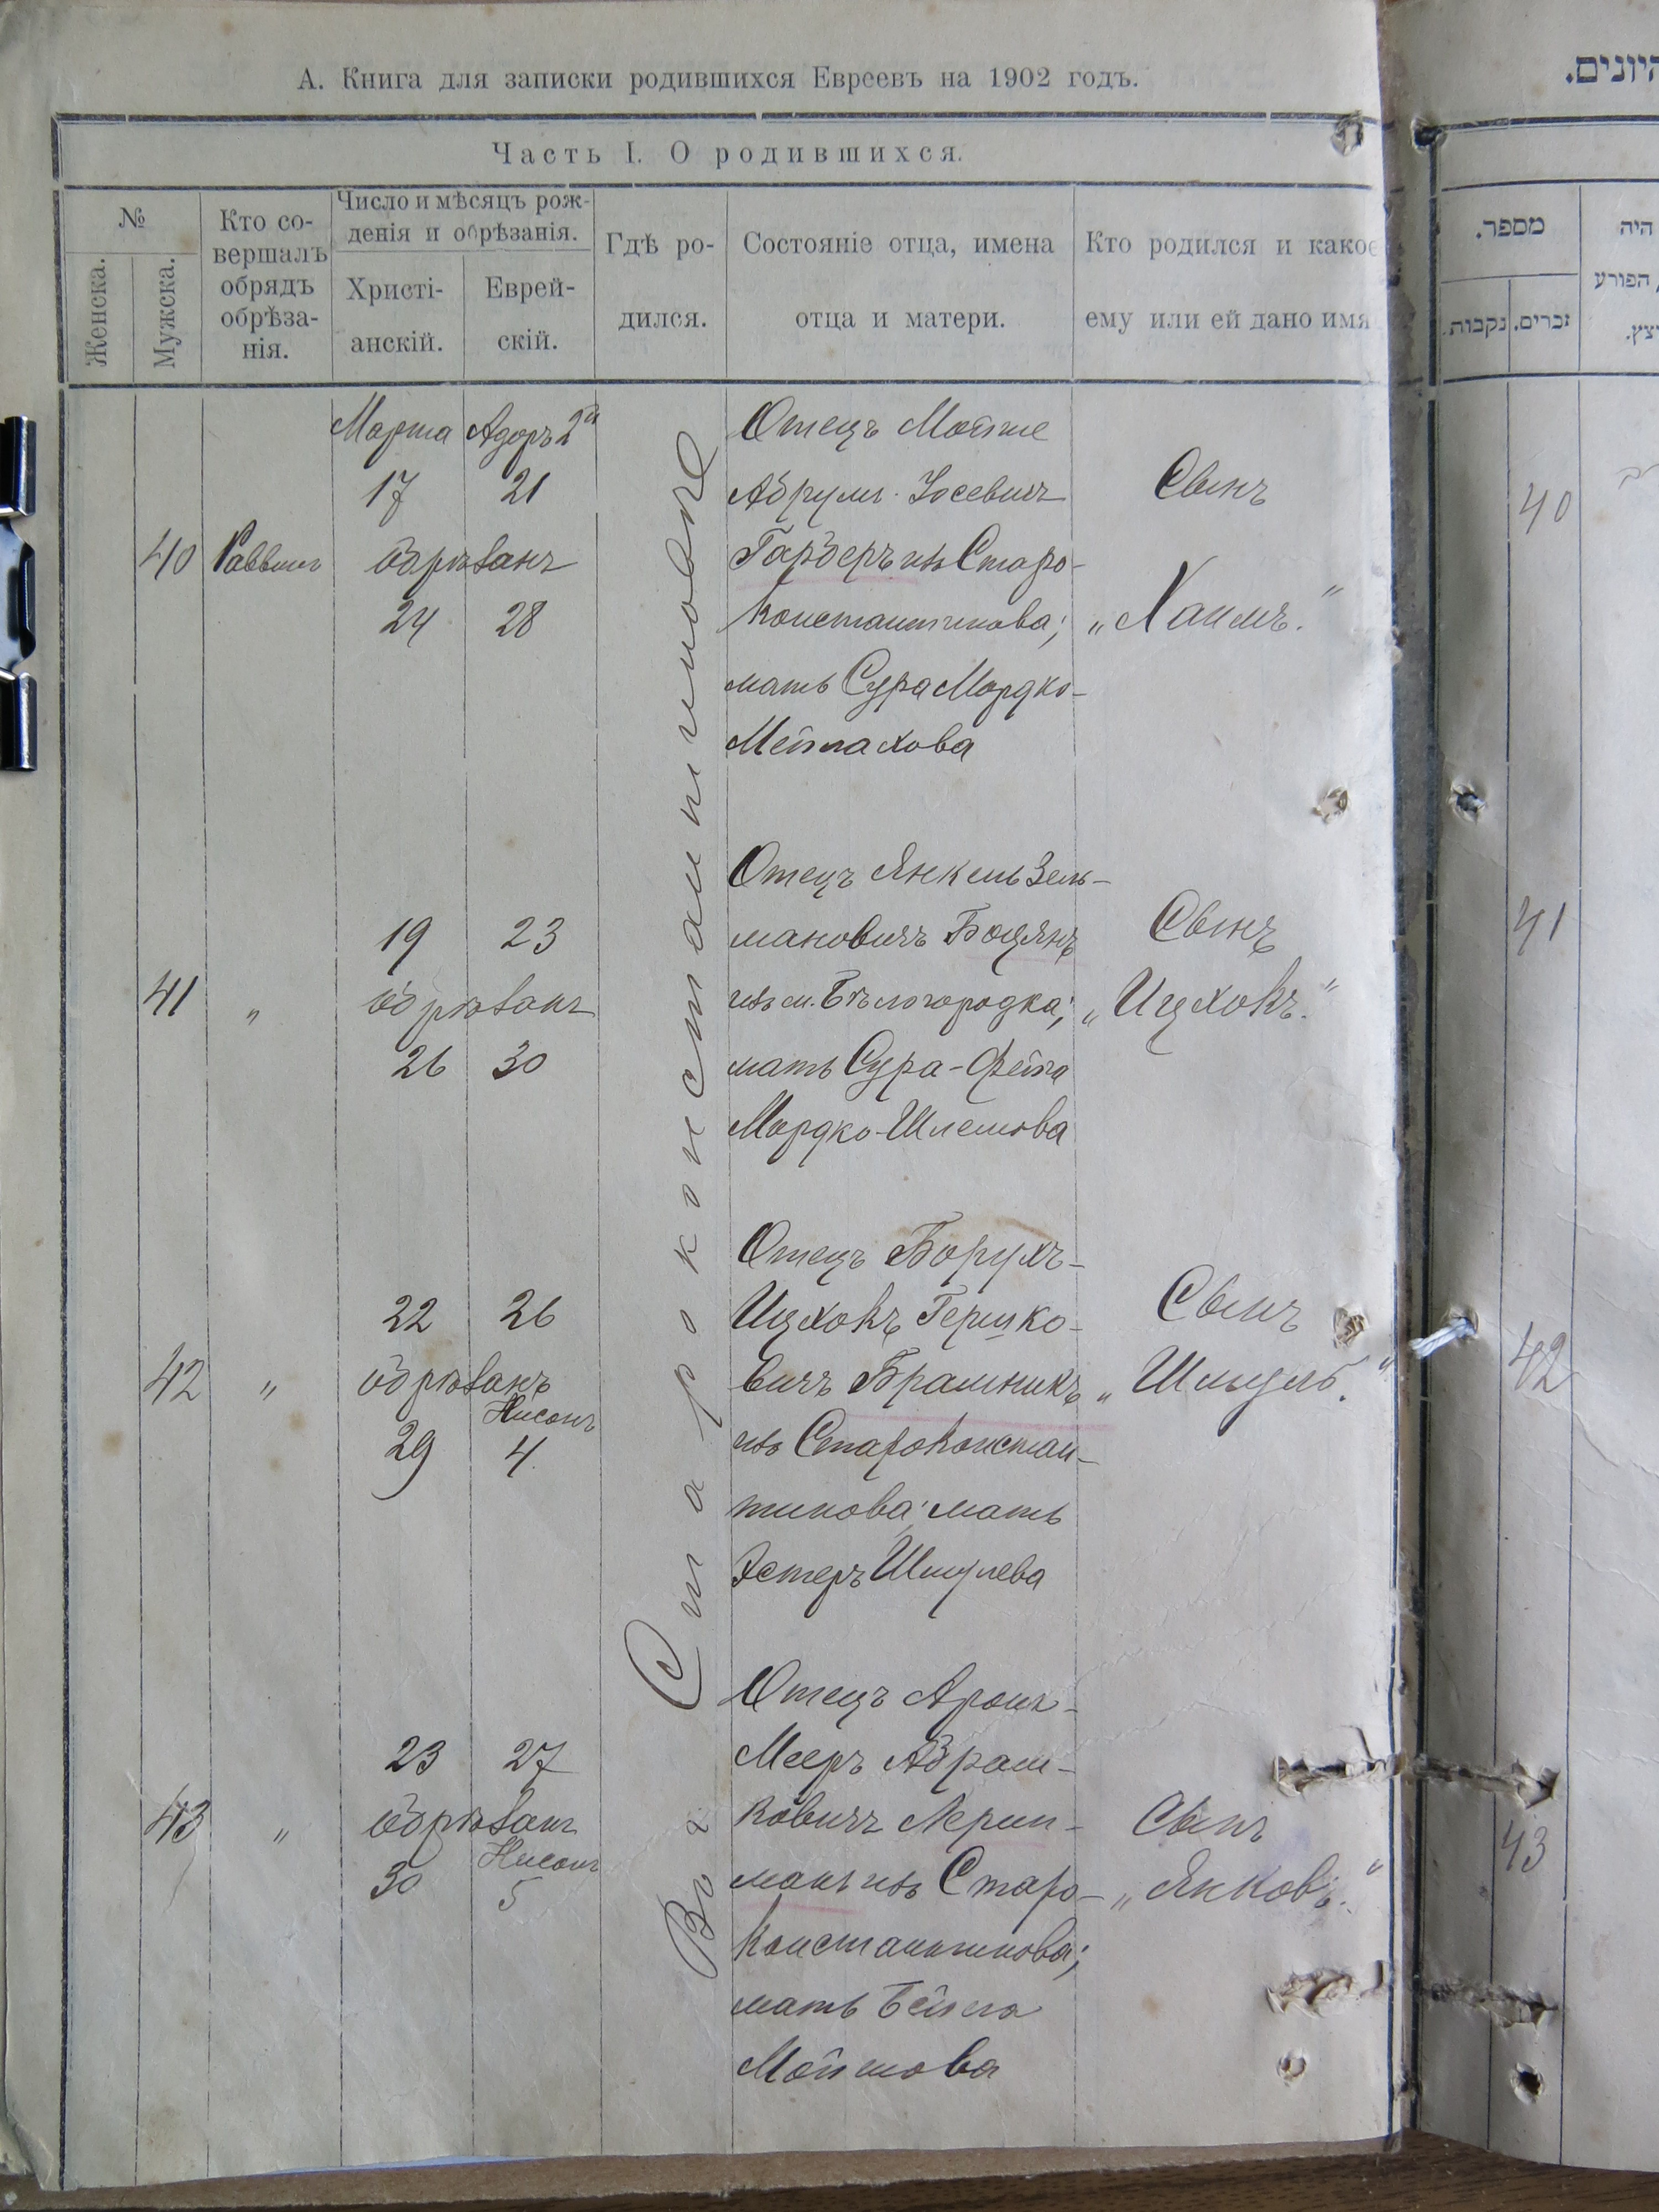 А. Книга для записки родившихся Евреевъ на 1902 годъ.
Часть I. О родившихся.
№
Женска.
Мужска.
Кто со-
вершалъ
обрядъ
обрѣза-
нія.
Число и мѣсяцъ рож-
денія и обрѣзанія.
Христі-
анскій.
Еврей-
скій.
Гдѣ ро-
дился.
Состояніе отца, имена
отца и матери.
Кто родился и какое
ему или ей дано имя
Въ Староконстантиновѣ
Марта Адоръ 2й
17 21
40 Раввинъ обрѣзанъ
24 28
Отецъ Мойше
Абрумъ Іосевичъ
Гарберъ изъ Старо-
константинова;
мать Сура Мордко-
Мейлахова
Сынъ
„Хаимъ.“
19 23
41 „ обрѣзанъ
26 30
Отецъ Янкель Зель-
мановичъ Боцянъ
изъ м. Бѣлогородка;
мать Сура-Фейга
Мордко-Шлемова
Сынъ
„Ицхокъ.“
22 26
42 „ обрѣзанъ
Нисонъ
29 4.
Отецъ Борухъ-
Ицхокъ Гершко-
вичъ Брашникъ
изъ Староконстан-
тинова; мать
Эстеръ Шмулева
Сынъ
„Шмуль.“
23 27
43 „ обрѣзанъ
Нисонъ
30 5
Отецъ Аронъ-
Мееръ Абрам-
ковичъ Лерин-
манъ изъ Старо-
константинова;
мать Бейла
Мойшова
Сынъ
„Янковъ.“
היונים.
מספר.
נקבות.
זכרים.
היה
הפורע
40
41
42
43